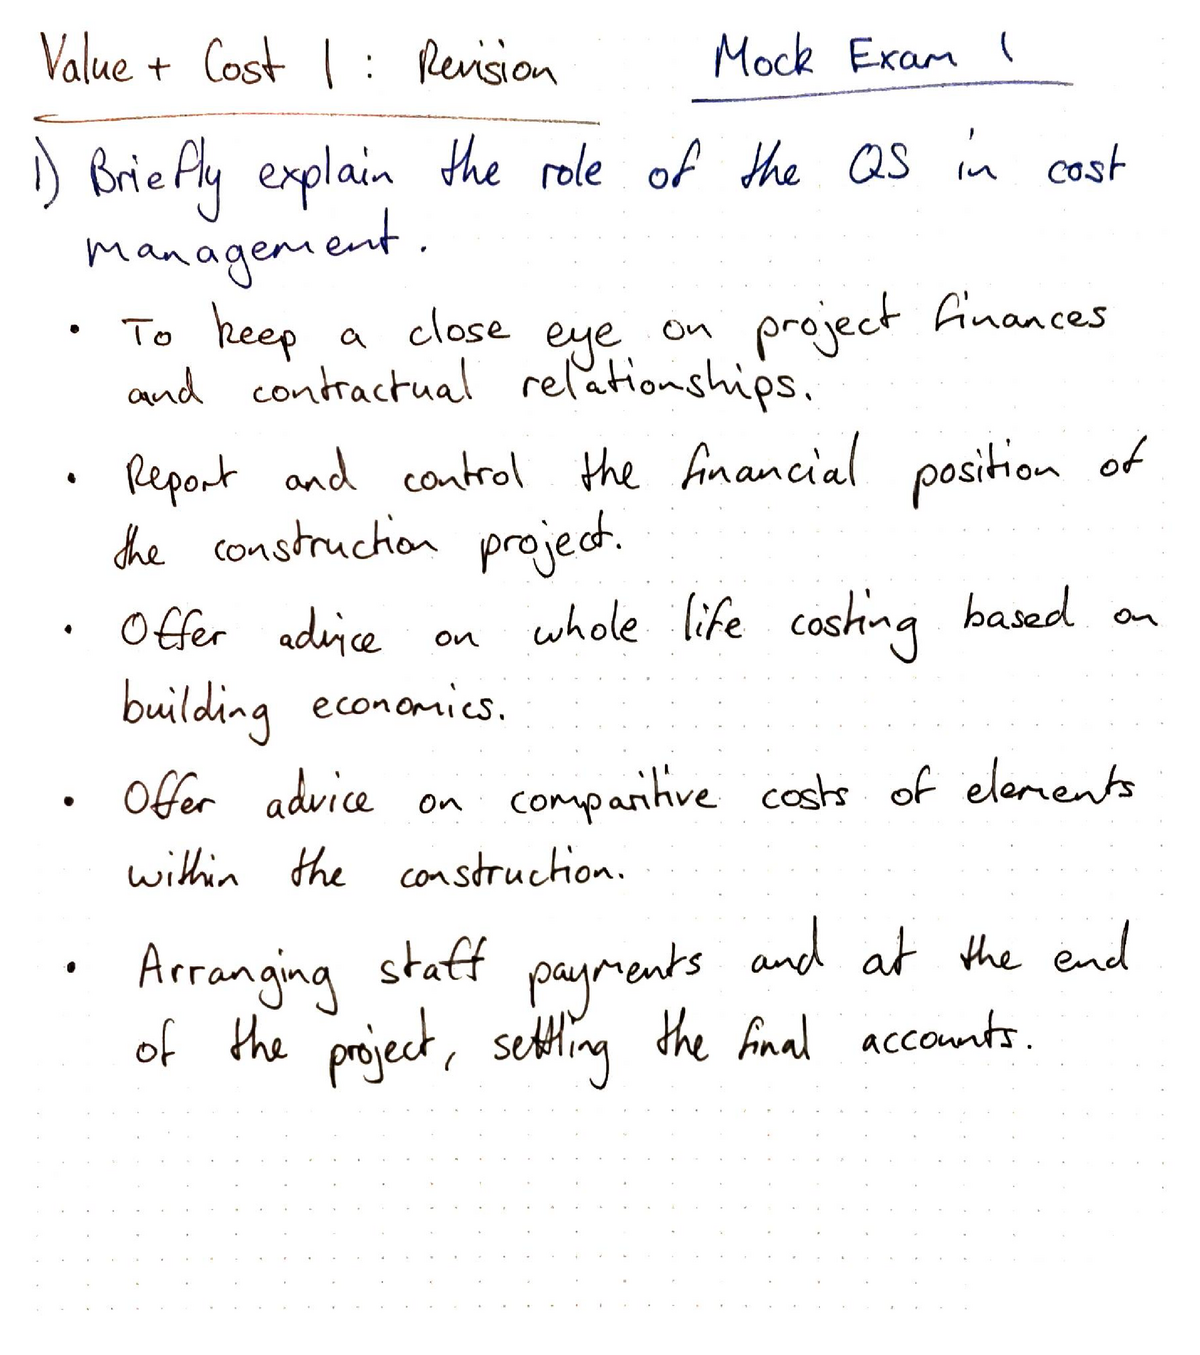 Value + Cost 1 : Revision Mock Exam 1
1) Briefly explain the role of the QS in cost
management.
• To keep a close eye on project finances
and contractual relationships.
• Report and control the financial position of
the construction project.
• Offer advice on whole life costing based on
building economics.
• Offer advice on comparitive costs of elements
within the construction.
• Arranging staff payments and at the end
of the project, settling the final accounts.